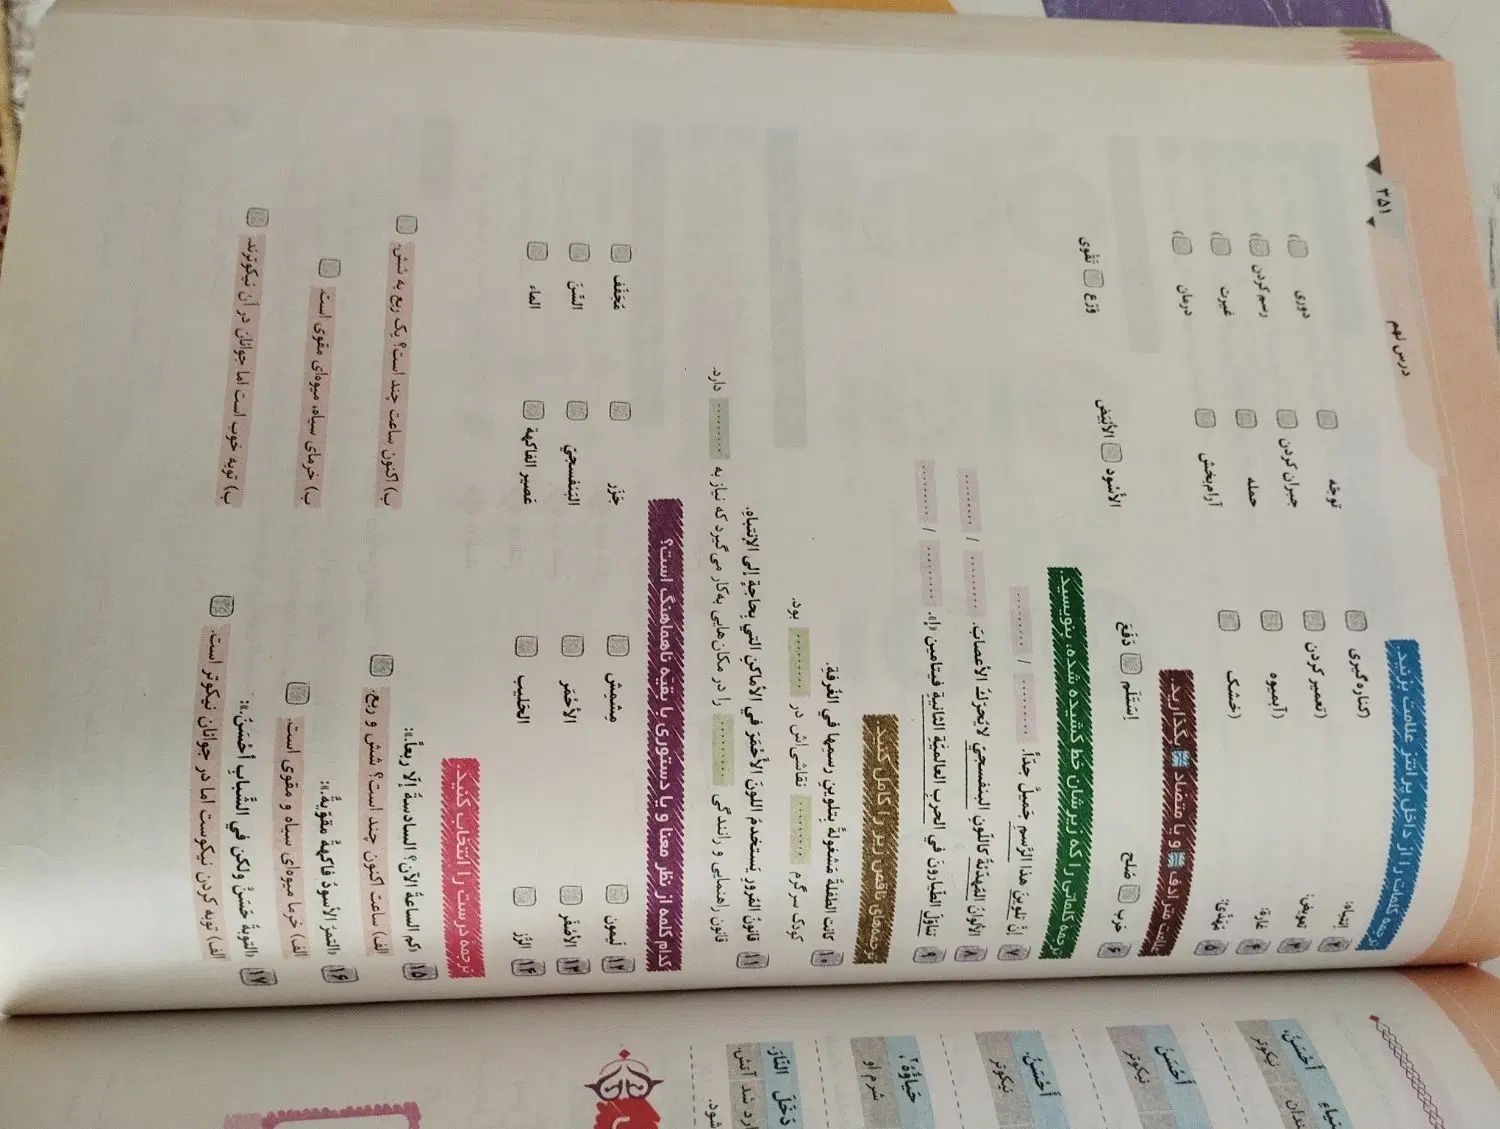 درس نهم
۳۵۱
ترجمه کلمات را از داخل پرانتز علامت بزنید.
۲ اِنتِباه: (کناره‌گیری توجّه دوری)
۳ تعویض: (تعمیر کردن جبران کردن رسم کردن)
۴ غارة: (آبمیوه حمله غیرت)
۵ مُهَدِّئ: (خشک آرام‌بخش درمان)
علامت مترادف و یا متضاد بگذارید.
۶ حَرب صُلح اِستَلَم دَفَعَ الأَسْوَد الأَبْیَض وَرَع تَقْوی
ترجمهٔ کلماتی را که زیرشان خط کشیده شده، بنویسید.
۷ إنَّ تلوینَ هذا الرَّسمِ جَمیلٌ جدّاً. ......... / .........
۸ الألوانُ المُهَدِّئَةُ کاللّونِ البنفسجيّ لا یُحرِّكُ الأعصابَ. ......... / .........
۹ تناوَلَ الطّیّارونَ في الحربِ العالمیّةِ الثّانیةِ فیتامین «آ». ......... / .........
ترجمه‌های ناقص زیر را کامل کنید.
۱۰ کانت الطفلةُ مَشغولةً بِتلوینِ رسمِها في الغُرفةِ.
کودک سرگرم ......... نقاشی‌اش در ......... بود.
۱۱ قانونُ المُرورِ یَستخدمُ اللونَ الأحْمَرَ في الأماکنِ الّتي بِحاجةٍ إلی الاِنتباهِ.
قانون راهنمایی و رانندگی ......... را در مکان‌هایی به‌کار می‌گیرد که نیاز به ......... دارد.
کدام کلمه از نظر معنا و یا دستوری با بقیّه ناهماهنگ است؟
۱۲ لَیمون مِشمِش جَزَر مُجَفَّف
۱۳ الأَصْفَر الأَحْمَر البَنَفسجيّ السِّنّ
۱۴ الرُّز الحَلیب عَصیر الفاکهة الماء
ترجمه درست را انتخاب کنید.
۱۵ «کم الساعةُ الآن؟ السادسةُ إلّا ربعاً.»:
الف) ساعت اکنون چند است؟ شش و ربع. ب) اکنون ساعت چند است؟ یک ربع به شش.
۱۶ «التمرُ الأسودُ فاکهةٌ مقوّیةٌ.»:
الف) خرما میوه‌ای سیاه و مقوی است. ب) خرمای سیاه، میوه‌ای مقوی است.
۱۷ «التوبةُ حَسَنٌ ولکن في الشَّبابِ أحْسَنُ.»:
الف) توبه کردن نیکوست اما در جوانان نیکوتر است. ب) توبه خوب است اما جوانان در آن نیکوترند.
أحْسَنُ،
نیکوتر
أحْسَنُ
نیکوتر
أحْسَنُ.
نیکوتر
حَیاؤُهُ
شرم او
دَخَلَ النّارَ.